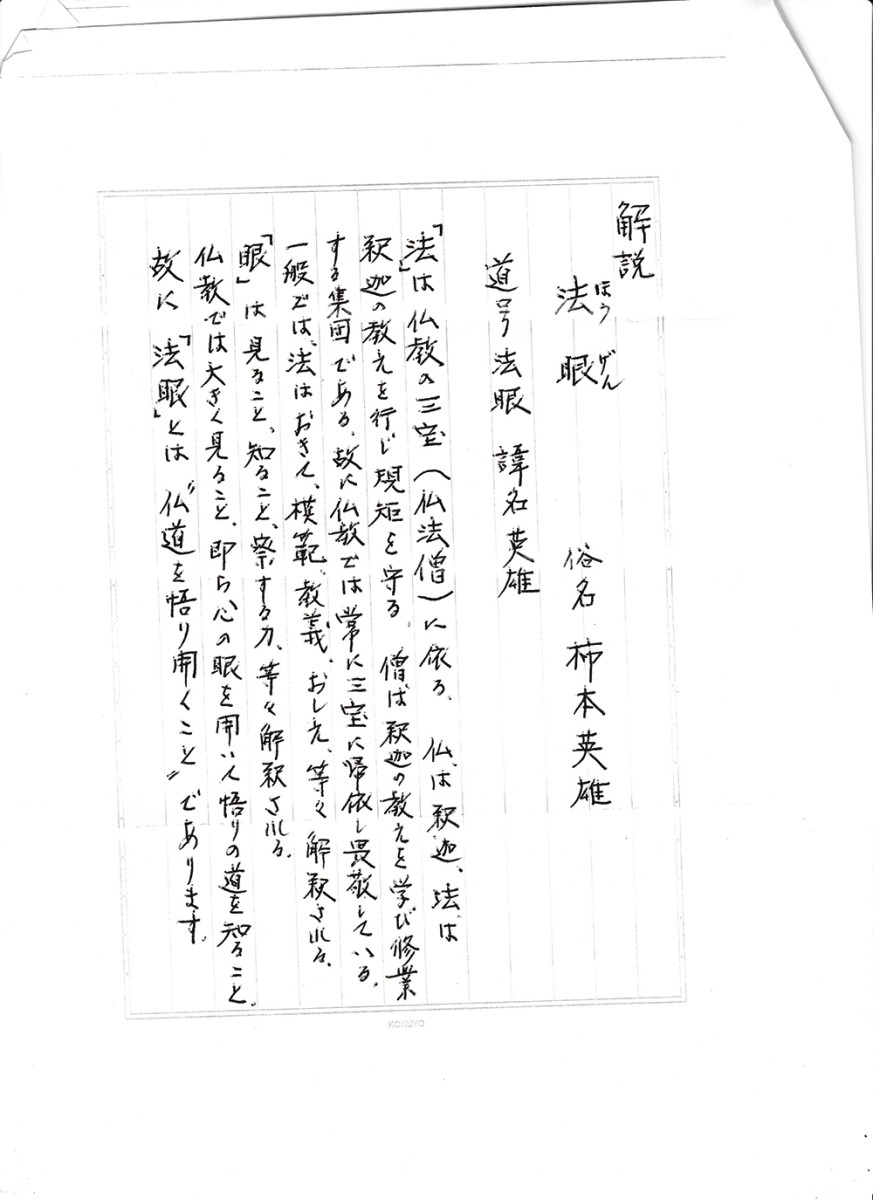 解説
法眼 俗名 柿本英雄
ほう げん
道号 法眼 諱名 英雄
「法」は仏教の三宝(仏法僧)に依る。仏は釈迦、法は
釈迦の教えを行じ規矩を守る。僧は釈迦の教えを学び修業
する集団である。故に仏教では常に三宝に帰依し畏敬している。
一般では、法はおきて、模範、教義、おしえ、等々解釈される。
「眼」は見ること、知ること、察する力、等々解釈される。
仏教では大きく見ること、即ち心の眼を用いて悟りの道を知ること。
故に「法眼」とは“仏道を悟り開くこと”であります。
KOKUYO